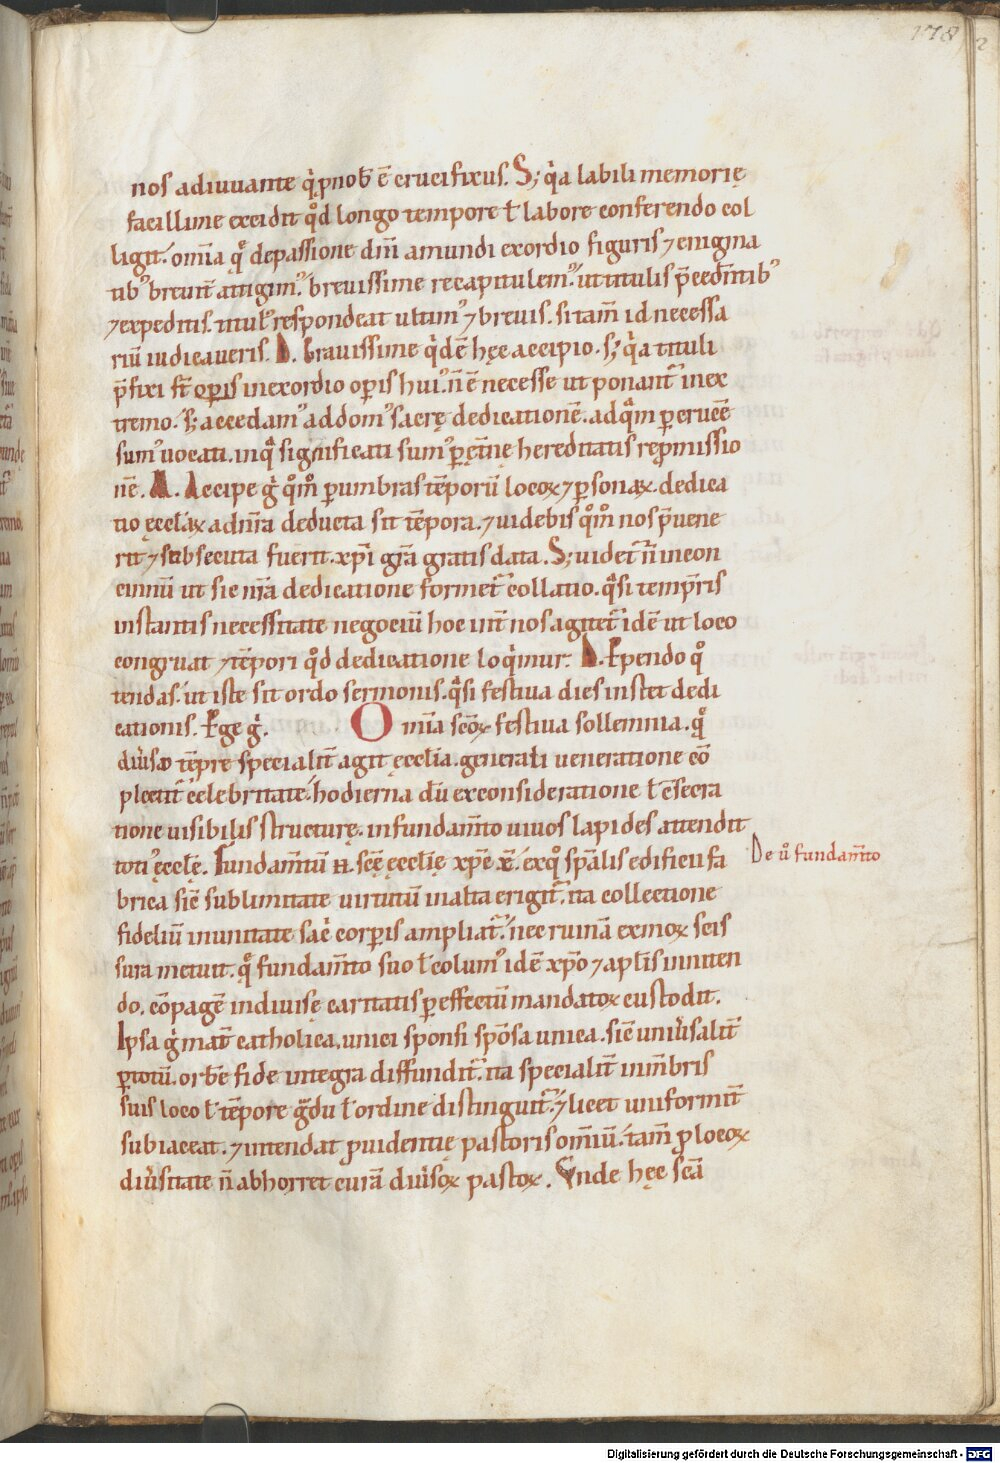 178
nos adiuuante q̇ pnob̄ ē crucifixus. S; q̇a labili memorię
facillime excidit qd̊ longo tempore ł labore conferendo col
ligit. om̄ia q̨ depassione dn̄i amundi exordio figuris ⁊ enigma
tib᾽ breuit̄ attigim᾽. breuissime recapitulem᾽. ut titulis p̄cedn̄tib᾽
⁊ expeditis. titul᾽ respondeat ultim᾽ ⁊ breuis. si tam̄ id necessa
riū iudicaueris. D. Grauissime q̇dē hęc accipio. s; q̇a tituli
p̄fixi st̄ opis inexordio opis hui᾽. n̄ ē necesse ut ponant᷑ inex
tremo. s; accedam᾽ addom᾽ sacrę dedicationē. adq̄m p crucē
sum᾽ uocati. inq̄ significati sum᾽ p ęt̄nę hereditatis rep̄missio
nē. M. Accipe ḡ qm̊ p umbras tēporū locoꝝ ⁊ psonaꝝ dedica
tio ęcclīaꝝ adn̄ra deducta sit tēpora. ⁊ uidebis qm̊ nos p̄uene
rit ⁊ subsecuta fuerit xp̄i gr̄a gratis data. S; uidet᷑ n̄ incon
cinnū ut sic n̄ra dedicatione formet᷑ collatio. qͣsi temp̄ris
instantis necessitate negociū hoc int̄ nos agitet᷑ idē ut loco
congruat ⁊ tēpori qd̊ dedicatione loq̇mur. D. Expendo q̊
tendas. ut iste sit ordo sermonis. qͣsi festiua dies instet dedi
cationis. Ege ḡ. Om̄ia sc̄oꝝ festiua sollemnia. q̨
diuīso tēpre specialit̄ agit ęcclīa. generali ueneratione cō
plectit᷑ celebritate. hodierna dū exconsideratione ł cōsecra
tione uisibilis structurę. infundam̄to uiuos lapides attendit
toti᾽ ęcclę. Fundam̄tū n̄. scę̄ ęcclię xpc̄ ē. exq̊ sp̄alis edificii fa
brica sic sublimitate uirtutū inalta erigit᷑. ita collectione
fideliū inunitate sac̄ corpis ampliat᷑. nec ruinā exmoꝝ scis
sura metuit. q̨ fundam̄to suo ł colum᾽ idē xp̄o ⁊ apl̄is inniten
do. cōpagē indiuisę caritatis p effectū mandatoꝝ custodit.
Ipsa ḡ mat̄ catholica. unici sponsi spōsa unica. sic uniu̾salit̄
p totū. orbē fide integra diffundit᷑. ita specialit̄ inmb̄ris
suis loco ł tēpore gͣdu ł ordine distinguit᷑. ⁊ licet uniformit̄
subiaceat. ⁊ intendat puidentię pastoris om̄iū. tam̄ p locoꝝ
diu̾sitate n̄ abhorret curā diu̾soꝝ pastoꝝ. Vnde hęc scā
De u̾ fundam̄to
Digitalisierung gefördert durch die Deutsche Forschungsgemeinschaft - DFG